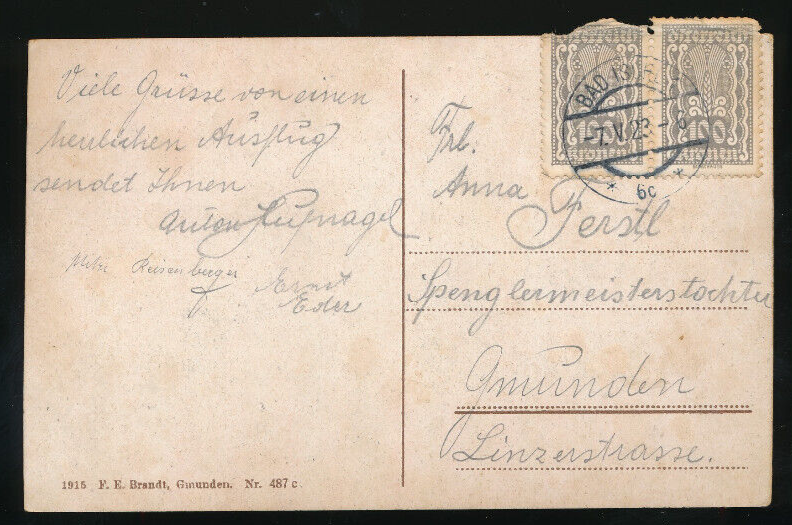 Viele Grüsse von einen
herrlichen Ausflug
sendet Ihnen
Anton Hufnagel
Reisenberger
Ernst
Eder
1915 F. E. Brandt, Gmunden. Nr. 487 c
BAD IS
-7.V.23-6
* 6c *
100
100
Frl.
Anna
Ferstl
Spenglermeisterstochter
Gmunden
Linzerstrasse.